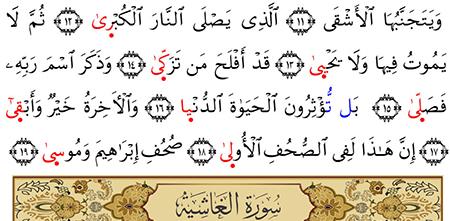 وَيَتَجَنَّبُهَا الۡأَشۡقَى ﴿١١﴾ الَّذِي يَصۡلَى النَّارَ الۡكُبۡرىٰ ﴿١٢﴾ ثُمَّ لَا
يَمُوتُ فِيهَا وَلَا يَحۡيىٰ ﴿١٣﴾ قَدۡ أَفۡلَحَ مَن تَزَكّىٰ ﴿١٤﴾ وَذَكَرَ اسۡمَ رَبِّهِۦ
فَصَلّىٰ ﴿١٥﴾ بَل تُّؤۡثِرُونَ الۡحَيَوٰةَ الدُّنۡيا ﴿١٦﴾ وَالۡأٓخِرَةُ خَيۡرٌ وَأَبۡقىٰٓ
﴿١٧﴾ إِنَّ هَٰذَا لَفِي الصُّحُفِ الۡأُولىٰ ﴿١٨﴾ صُحُفِ إِبۡرَٰهِيمَ وَمُوسىٰ ﴿١٩﴾
سُورَةُ الغَاشِيَةِ